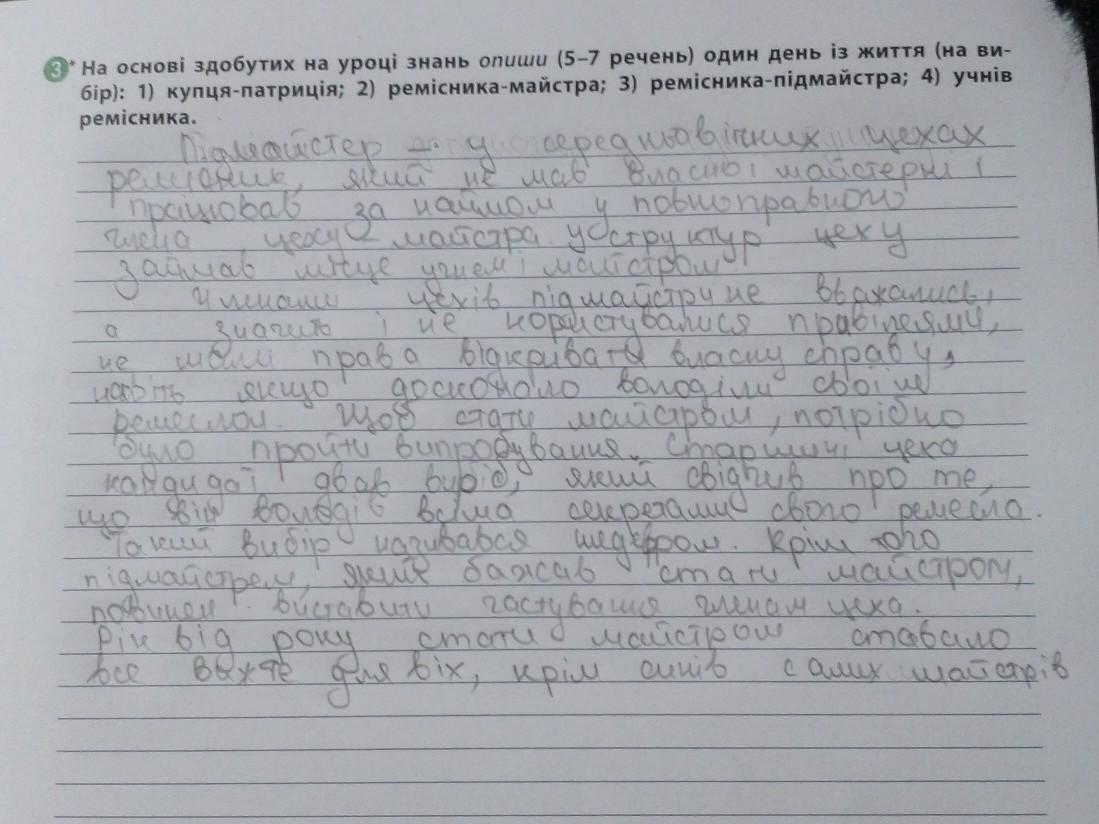 3* На основі здобутих на уроці знань опиши (5–7 речень) один день із життя (на ви-
бір): 1) купця-патриція; 2) ремісника-майстра; 3) ремісника-підмайстра; 4) учнів
ремісника.
Підмайстер - у середньовічних цехах
ремісник, який не мав власної майстерні і
працював за наймом у повноправного
члена цеху майстра. У структур цеху
займав місце учнем і майстром.
Членами цехів підмайстри не вважались,
а значить і не користувалися правілеями,
не мали права відкривати власну справу,
навіть якщо досконало володіли своїм
ремеслом. Щоб стати майстром, потрібно
було пройти випробування. Старшині цеха
кандидат двав виріб, який свідчив про те,
що він володів всіма секретами свого ремесла.
Такий вибір називався шедевром. Крім того
підмайстрем, який бажав стати майстром,
повинен виставити частування членам цеха.
Рік від року стати майстром ставало
все важче для віх, крім синів самих майстрів